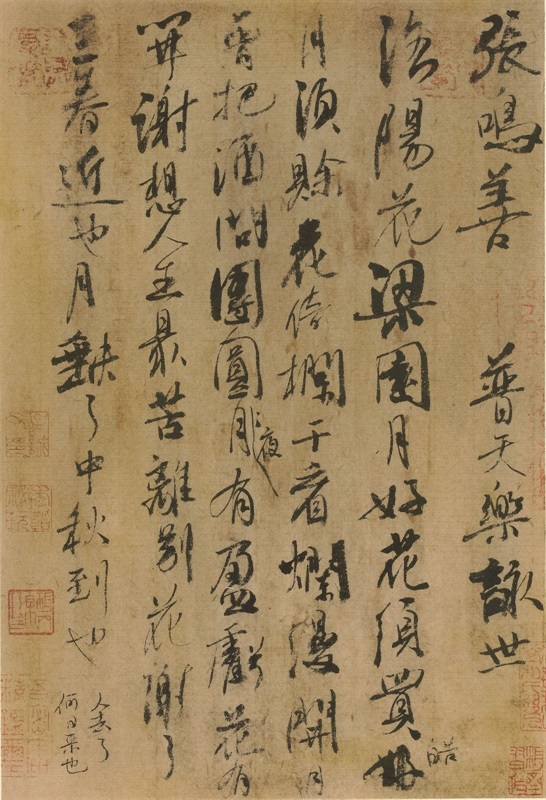 張鳴善 普天樂 詠世
洛陽花梁園月好花須買皓
月須賒花倚欄干看爛漫開月
曾把酒問團圓夜月有盈虧花有
開謝想人生最苦離別花謝了
三春近也月缺了中秋到也
人去了
何日來也